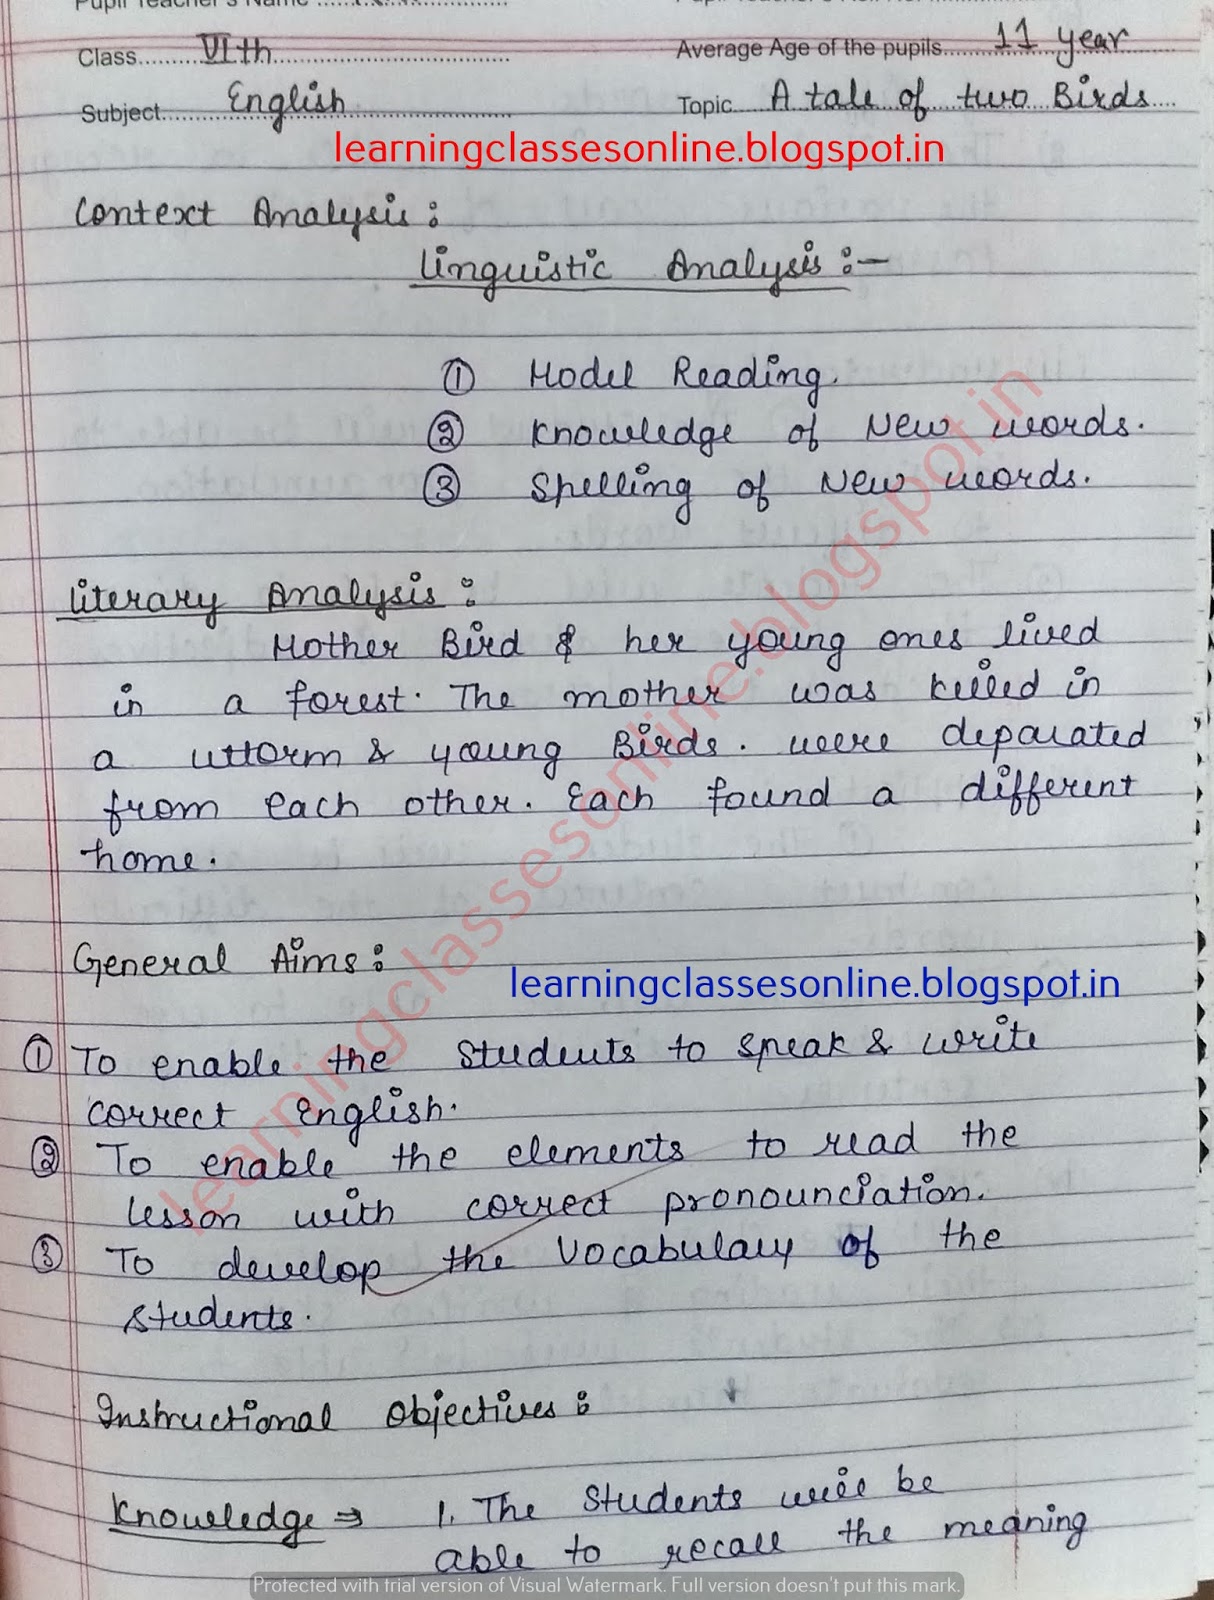 Pupil Teacher's Name
Class VIth Average Age of the pupils 11 year
Subject English Topic A tale of two Birds
learningclassesonline.blogspot.in
Context Analysis:
Linguistic Analysis :-
① Model Reading.
② Knowledge of New words.
③ Spelling of New words.
Literary Analysis :
Mother Bird & her young ones lived
in a forest. The mother was killed in
a uttorm & young Birds. were deparated
from each other. Each found a different
home.
General Aims :
learningclassesonline.blogspot.in
① To enable the Students to speak & write
correct English.
② To enable the elements to read the
lesson with correct pronounciation.
③ To develop the Vocabulary of the
students.
Instructional Objectives :
Knowledge ⇒ 1. The Students will be
able to recall the meaning
learningclassesonline.blogspot.in
Protected with trial version of Visual Watermark. Full version doesn't put this mark.